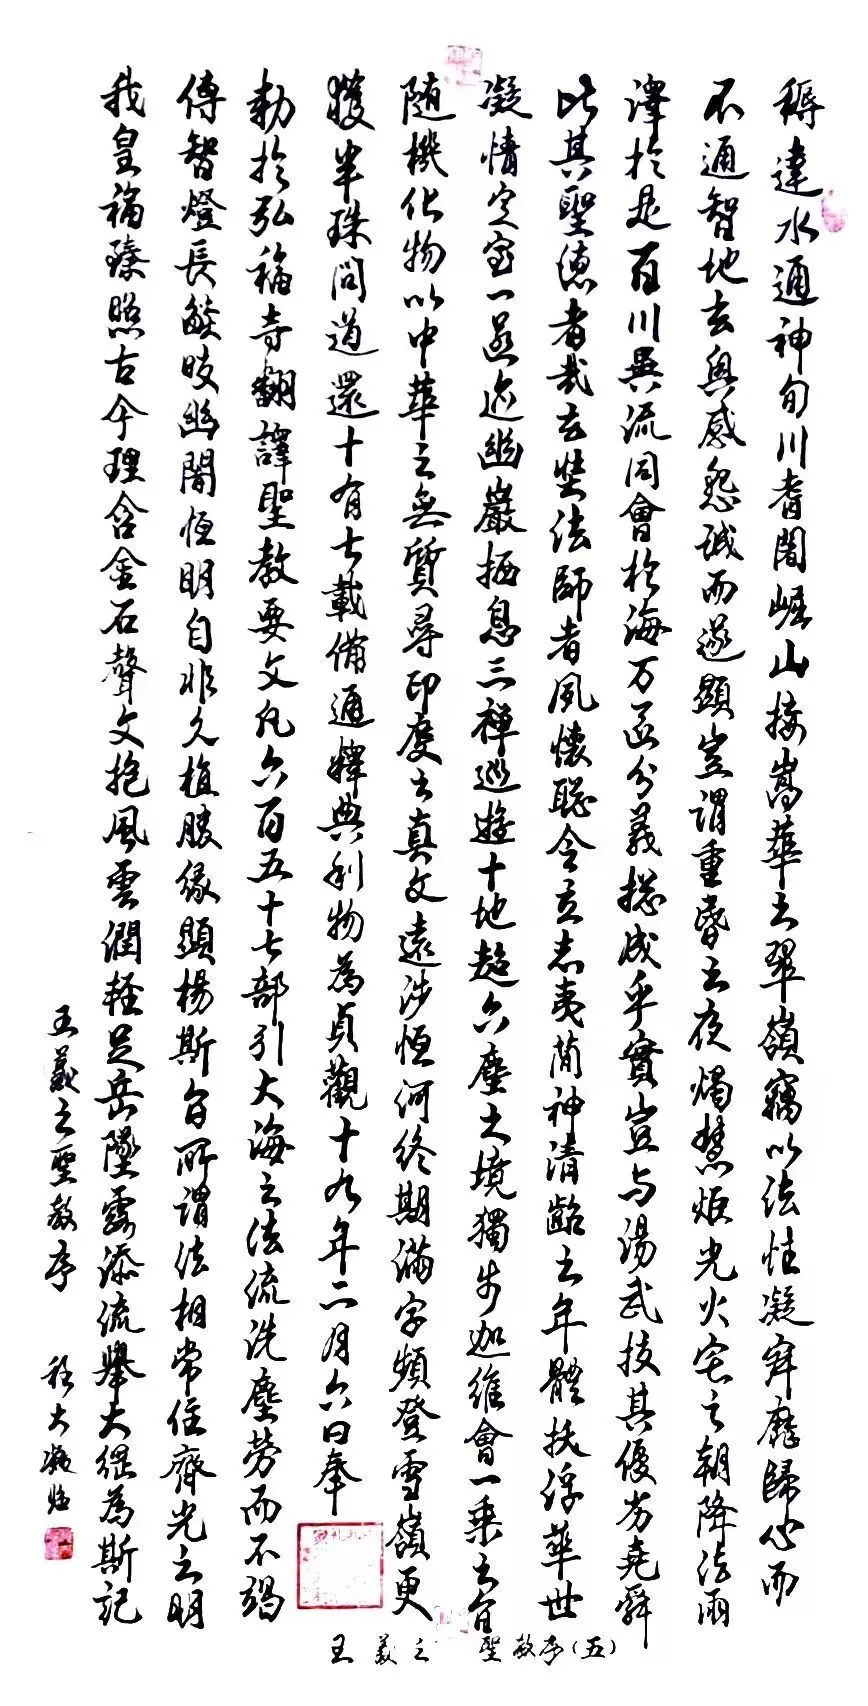 耨達水通神甸川耆闍崛山接嵩華之翠嶺竊以法性凝寂靡歸心而
不通智地玄奧感懇誠而遂顯豈謂重昏之夜燭慧炬光火宅之朝降法雨
澤於是百川異流同會於海万區分義揔成乎實豈与湯武挍其優劣堯舜
比其聖德者哉玄奘法師者夙懷聡令立志夷簡神清齠之年體拔浮華世
凝情定室一匿迹幽巖栖息三禪巡遊十地超六塵之境獨步迦維會一乘之旨
随機化物以中華之無質尋印度之真文遠涉恒河終期滿字頻登雪嶺更
獲半珠問道還十有七載備通釋典利物為貞觀十九年二月六日奉
勑於弘福寺翻譯聖教要文凡六百五十七部引大海之法流洗塵勞而不竭
傳智燈長燄皎幽闇恒明自非久植勝緣顯揚斯旨所謂法相常住齊光之明
我皇福臻照古今理含金石聲文抱風雲潤輕足岳墜露添流舉大綱為斯記
王羲之聖教序 程大凝臨
王羲之 聖教序(五)